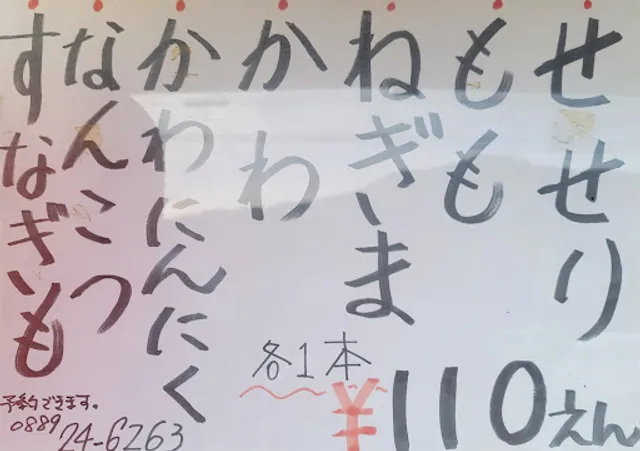 せせり
もも
ねぎま
かわ
かわにんにく
なんこつ
すなぎも
各1本
¥110えん
予約できます。
0889
24-6263